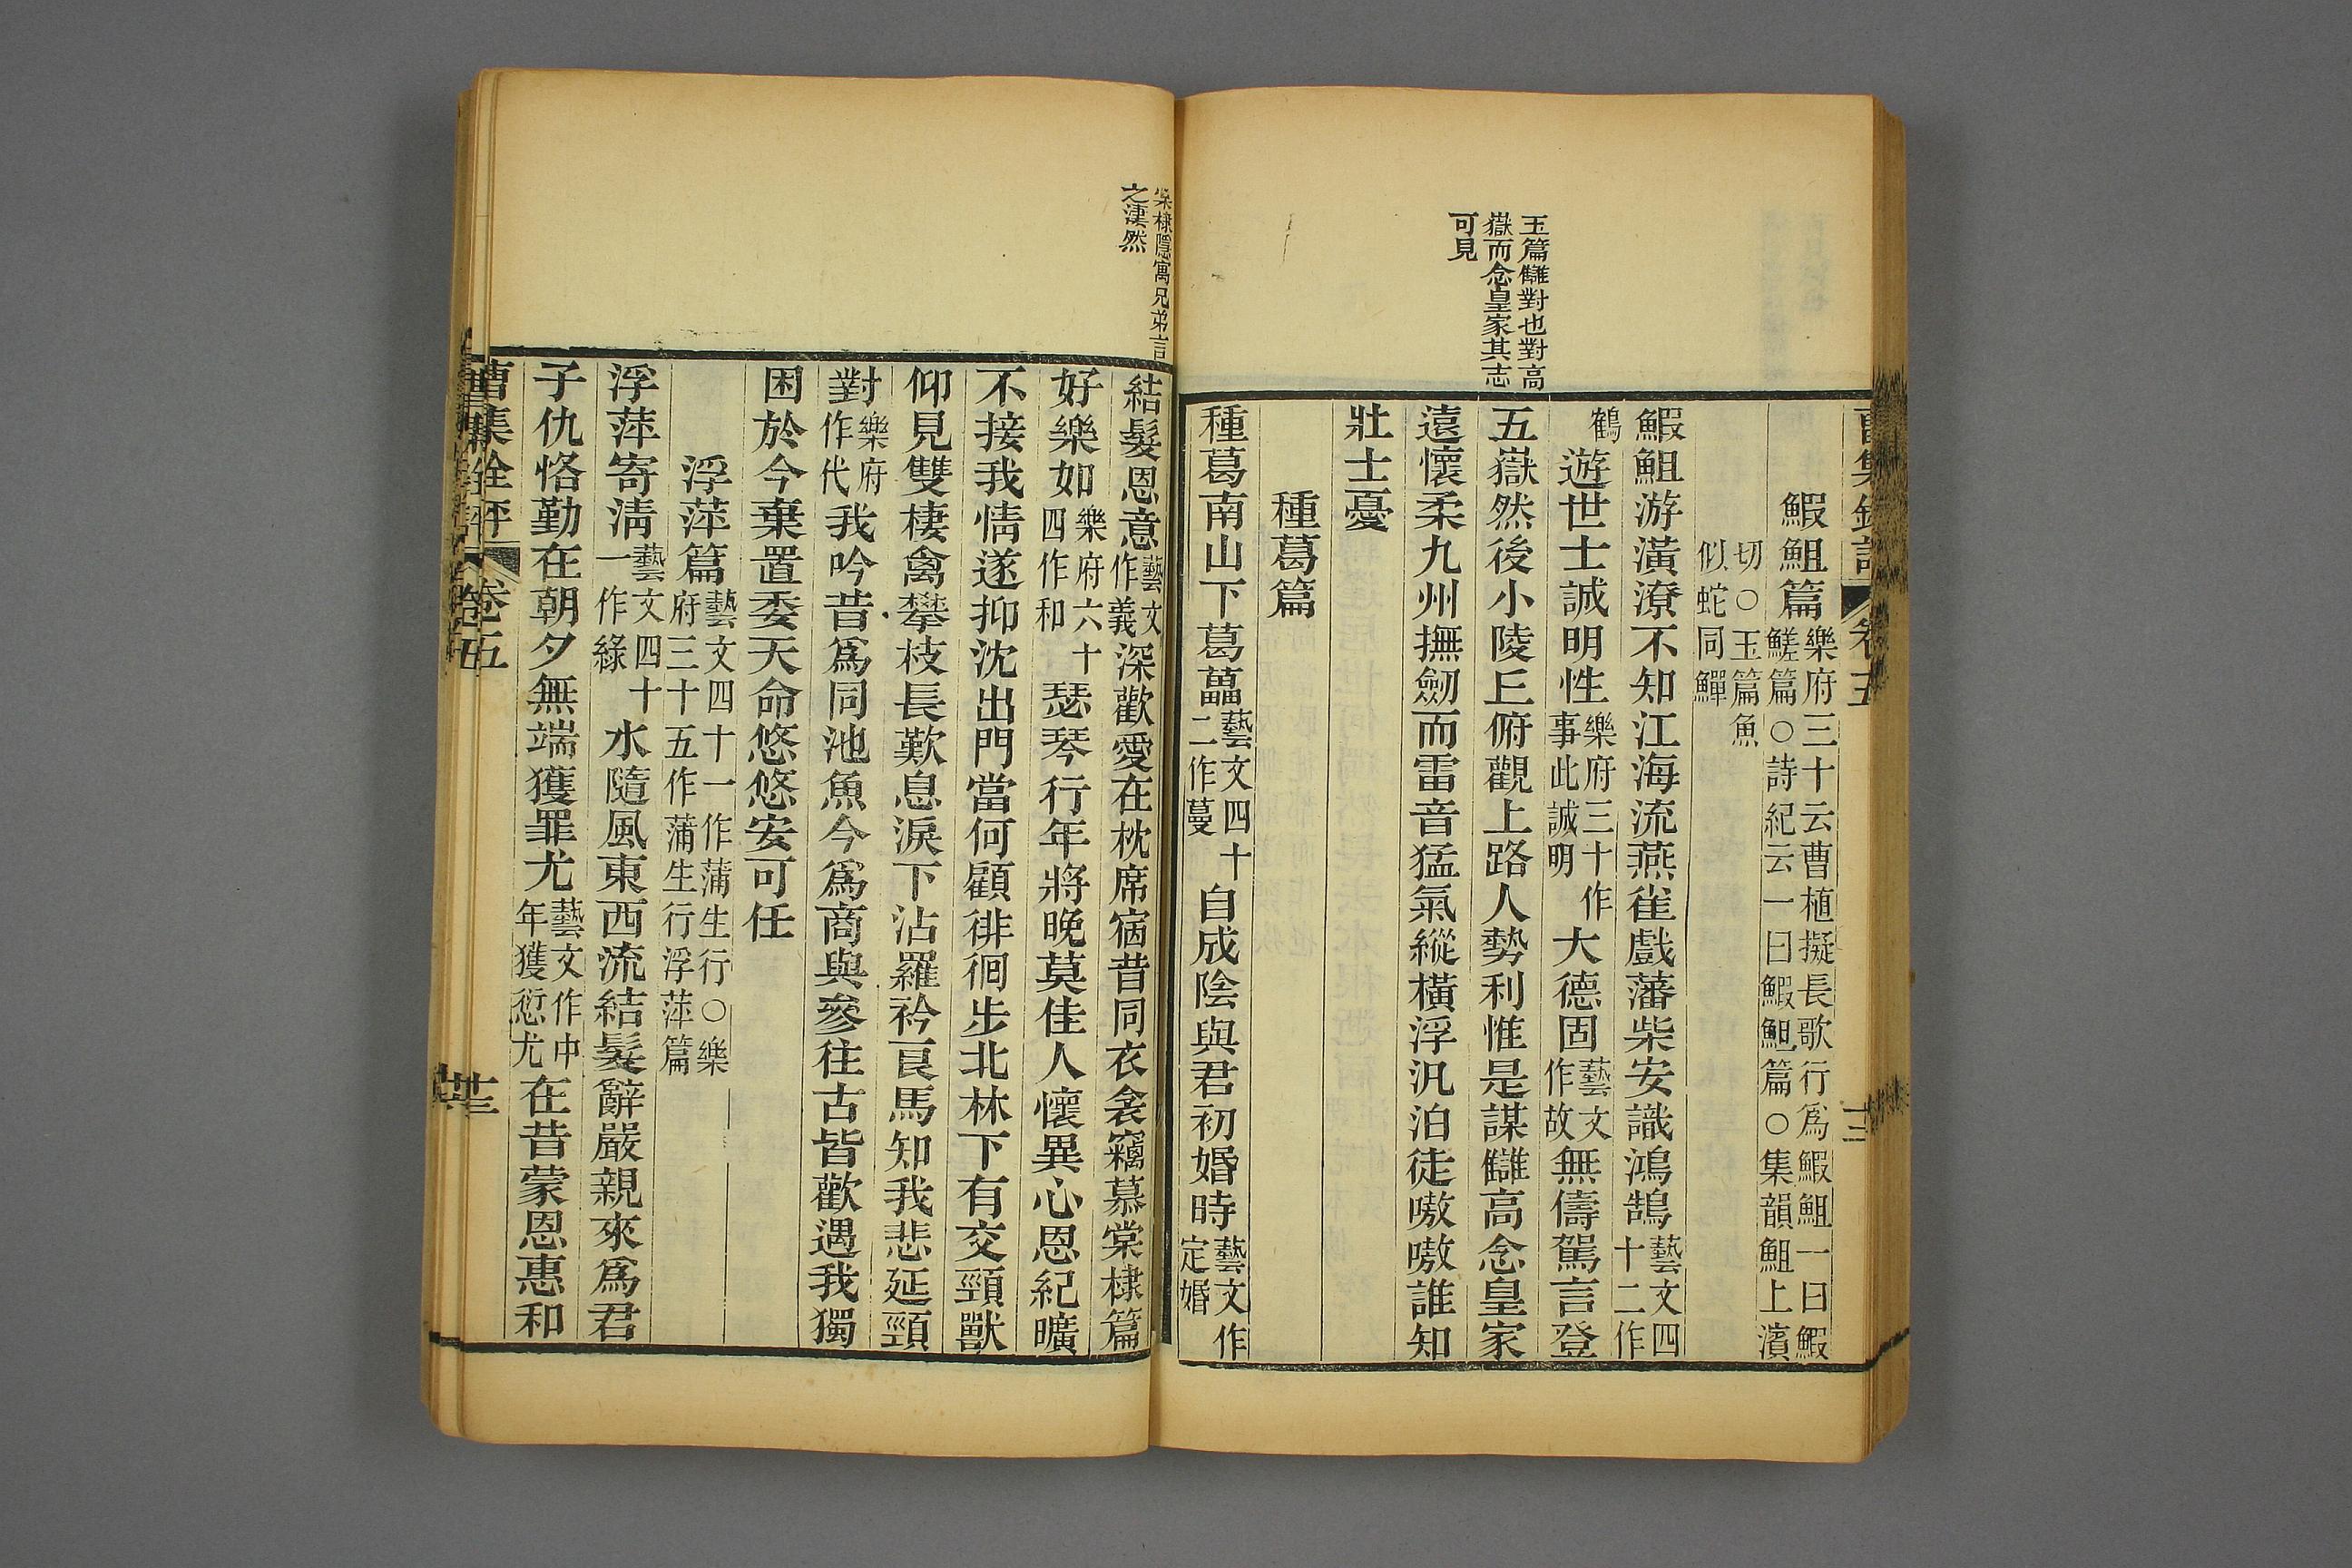 玉篇讎對也對高
嶽而念皇家其志
可見
鰕䱇篇樂府三十云曹植擬長歌行爲鰕䱇一曰鰕
䱹篇○詩紀云一曰鰕䱇篇○集韻䱇上演
切○玉篇魚
似蛇同鱓
鰕䱇游潢潦不知江海流燕雀戲藩柴安識鴻鵠藝文四十二作
鶴遊世士誠明性樂府三十作事此誠明大德固藝文作故無儔駕言登
五嶽然後小陵丘俯觀上路人勢利惟是謀讎高念皇家
遠懷柔九州撫劒而雷音猛氣縱橫浮汎泊徒嗷嗷誰知
壯士憂
種葛篇
種葛南山下葛藟藝文四十二作蔓自成陰與君初婚時藝文作定婚
棠棣隱寓兄弟言
之淒然
結髮恩意藝文作義深歡愛在枕席宿昔同衣衾竊慕棠棣篇
好樂如樂府六十四作和瑟琴行年將晚莫佳人懷異心恩紀曠
不接我情遂抑沈出門當何顧徘徊步北林下有交頸獸
仰見雙棲禽攀枝長歎息淚下沾羅衿良馬知我悲延頸
對樂府作代我吟昔爲同池魚今爲商與參往古皆歡遇我獨
困於今棄置委天命悠悠安可任
浮萍篇藝文四十一作蒲生行○樂
府三十五作蒲生行浮萍篇
浮萍寄淸藝文四十一作綠水隨風東西流結髮辭嚴親來爲君
子仇恪勤在朝夕無端獲罪尤藝文作中年獲愆尤在昔蒙恩惠和
曹集銓評
卷五